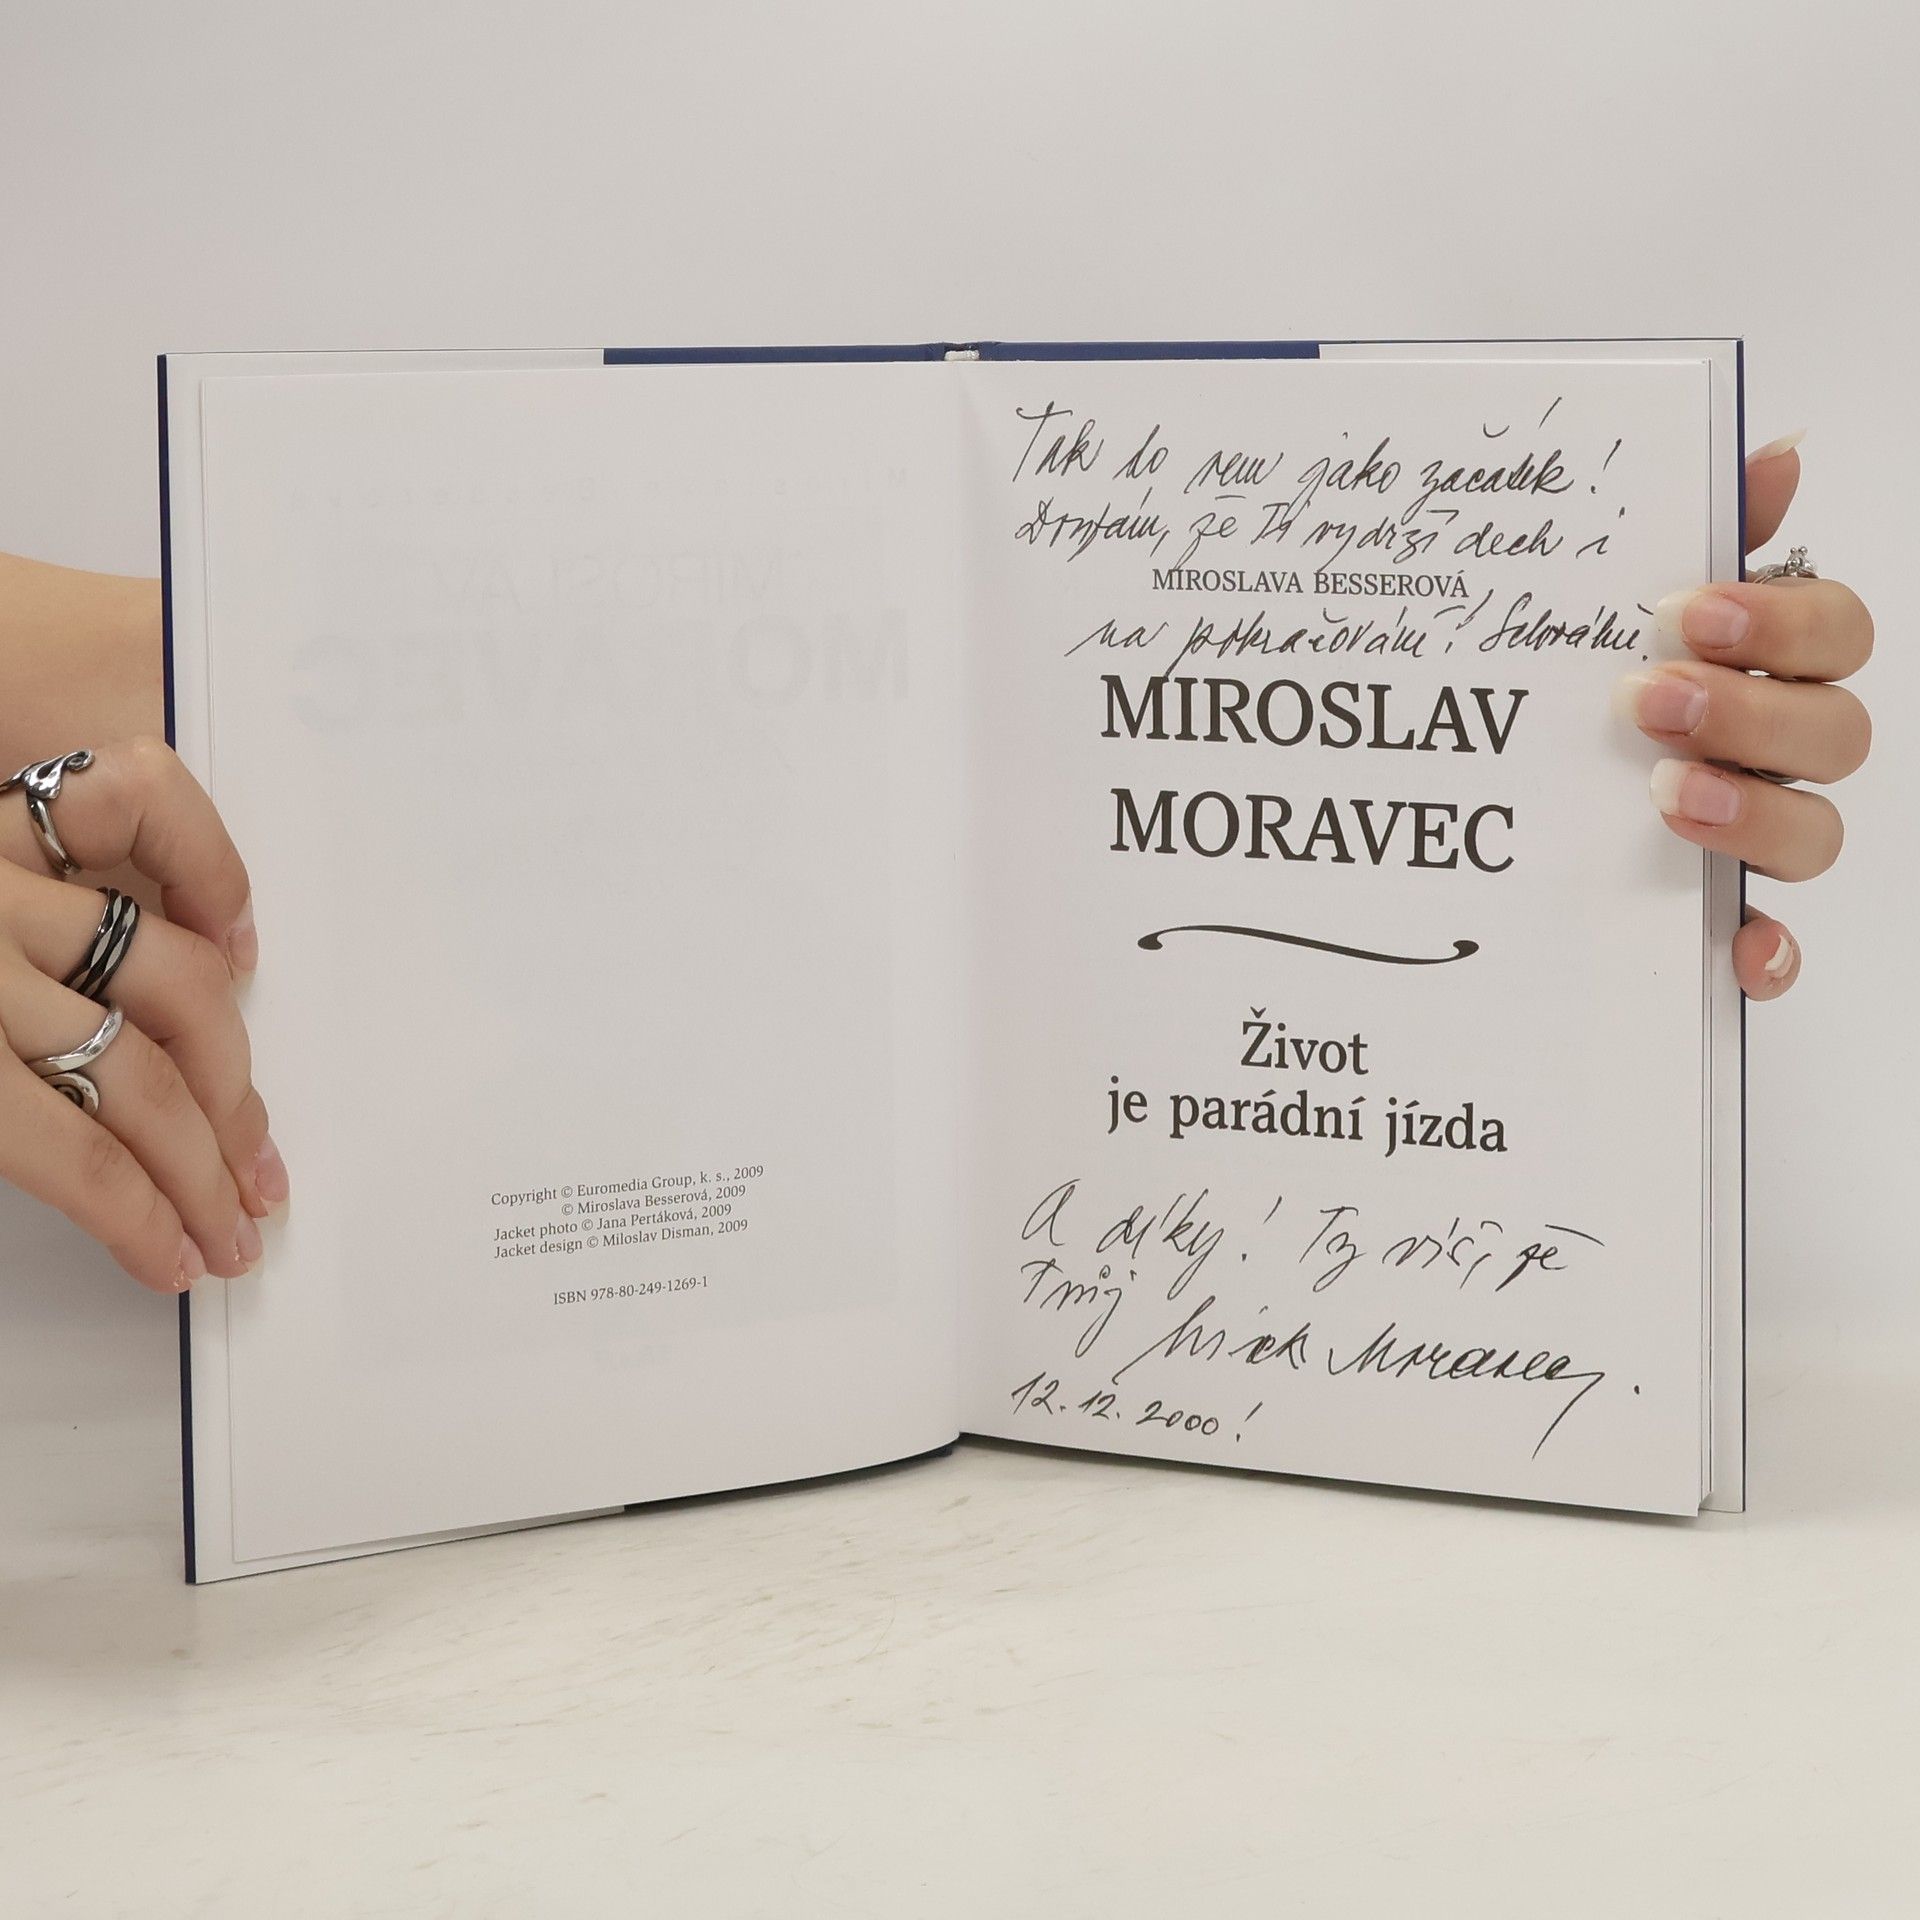 Copyright © Euromedia Group, k. s., 2009
© Miroslava Besserová, 2009
Jacket photo © Jana Pertáková, 2009
Jacket design © Miloslav Disman, 2009
ISBN 978-80-249-1269-1
Tak to jako začátek!
Doufám, že Ti vydrží dech i
MIROSLAVA BESSEROVÁ
na pokračování!
MIROSLAV
MORAVEC
Život
je parádní jízda
A díky! Ty víš, že
Tvůj
Mirek Moravec.
12. 12. 2000!